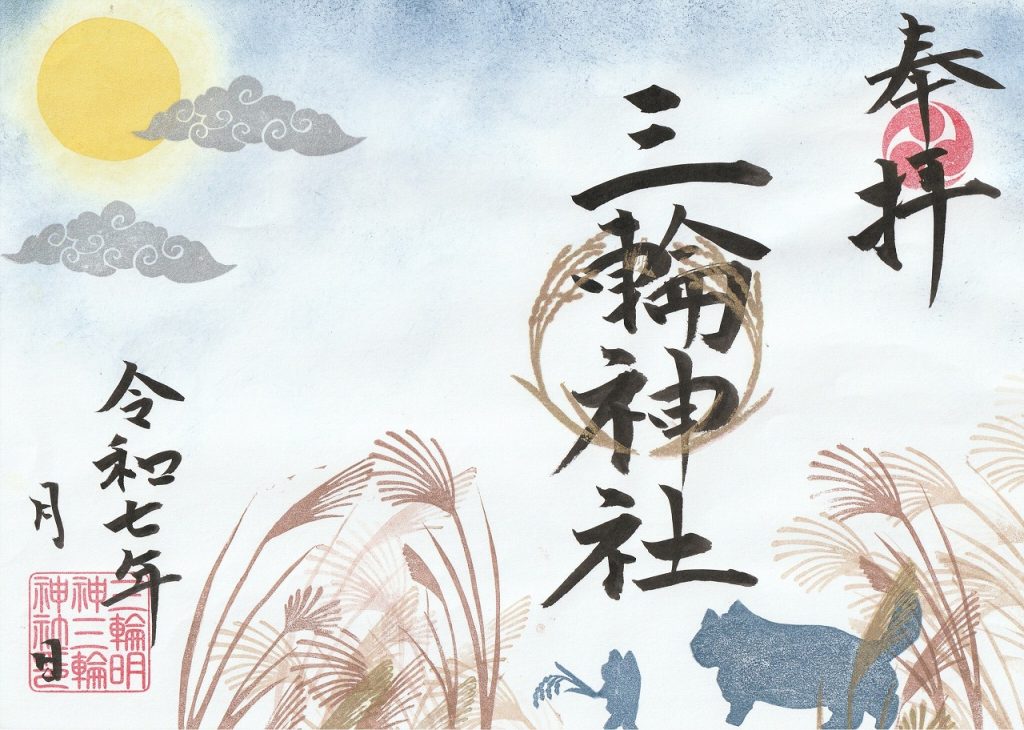 奉拝
三輪神社
令和七年
月 日
三輪明
神三輪
神社